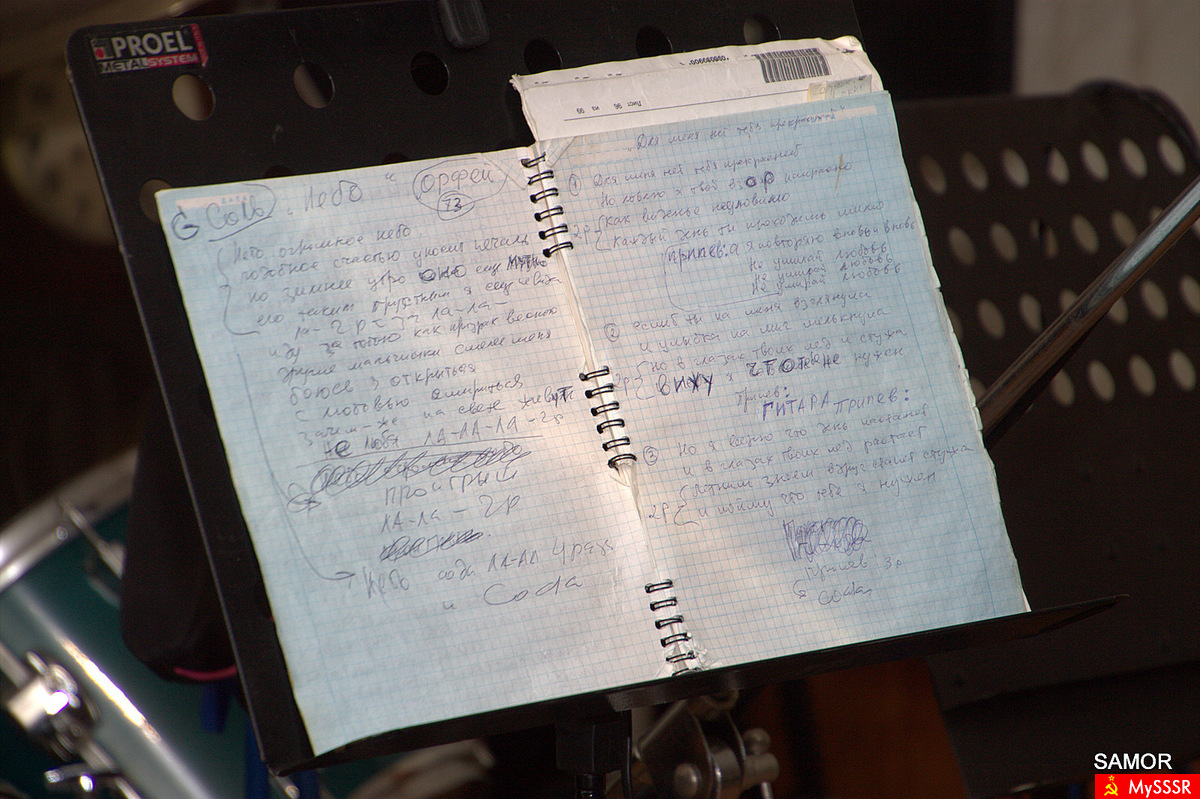 PROEL
METAL SYSTEM
Лист 96 из 96
G Coda „Небо" Орфей
73
Небо, огромное небо,
подобное счастью уносит печали
но зимнее утро оно ещё
его таким грустным я ещё не
ла- 2р ла-ла-
иду за тобою как призрак весною
другие мальчишки смелее меня
боюсь я открыться
с любовью смириться
зачем-же на свете живут
не любя ЛА-ЛА-ЛА-2р
проигрыш
ЛА-ла - 2р
Небо соло ЛА-ЛА 4 раза
и Coda
„Для меня нет тебя прекрасней"
① Для меня нет тебя прекрасней
Но ловлю я твой взор напрасно
2р Как виденье неуловима
Каждый день ты проходишь мимо
припев: а я повторяю вновь и вновь
Не умирай любовь
Не умирай любовь
Не умирай любовь
② если б ты на меня взглянула
и улыбка на миг мелькнула
2р Но в глазах твоих лёд и стужа
вижу я что не нужен
Припев:
ГИТАРА припев:
③ Но я верю что день настанет
и в глазах твоих лёд растает
2р Летним зноем вдруг станет стужа
и пойму что тебе я нужен
Припев 3р
Coda
SAMOR
MySSSR